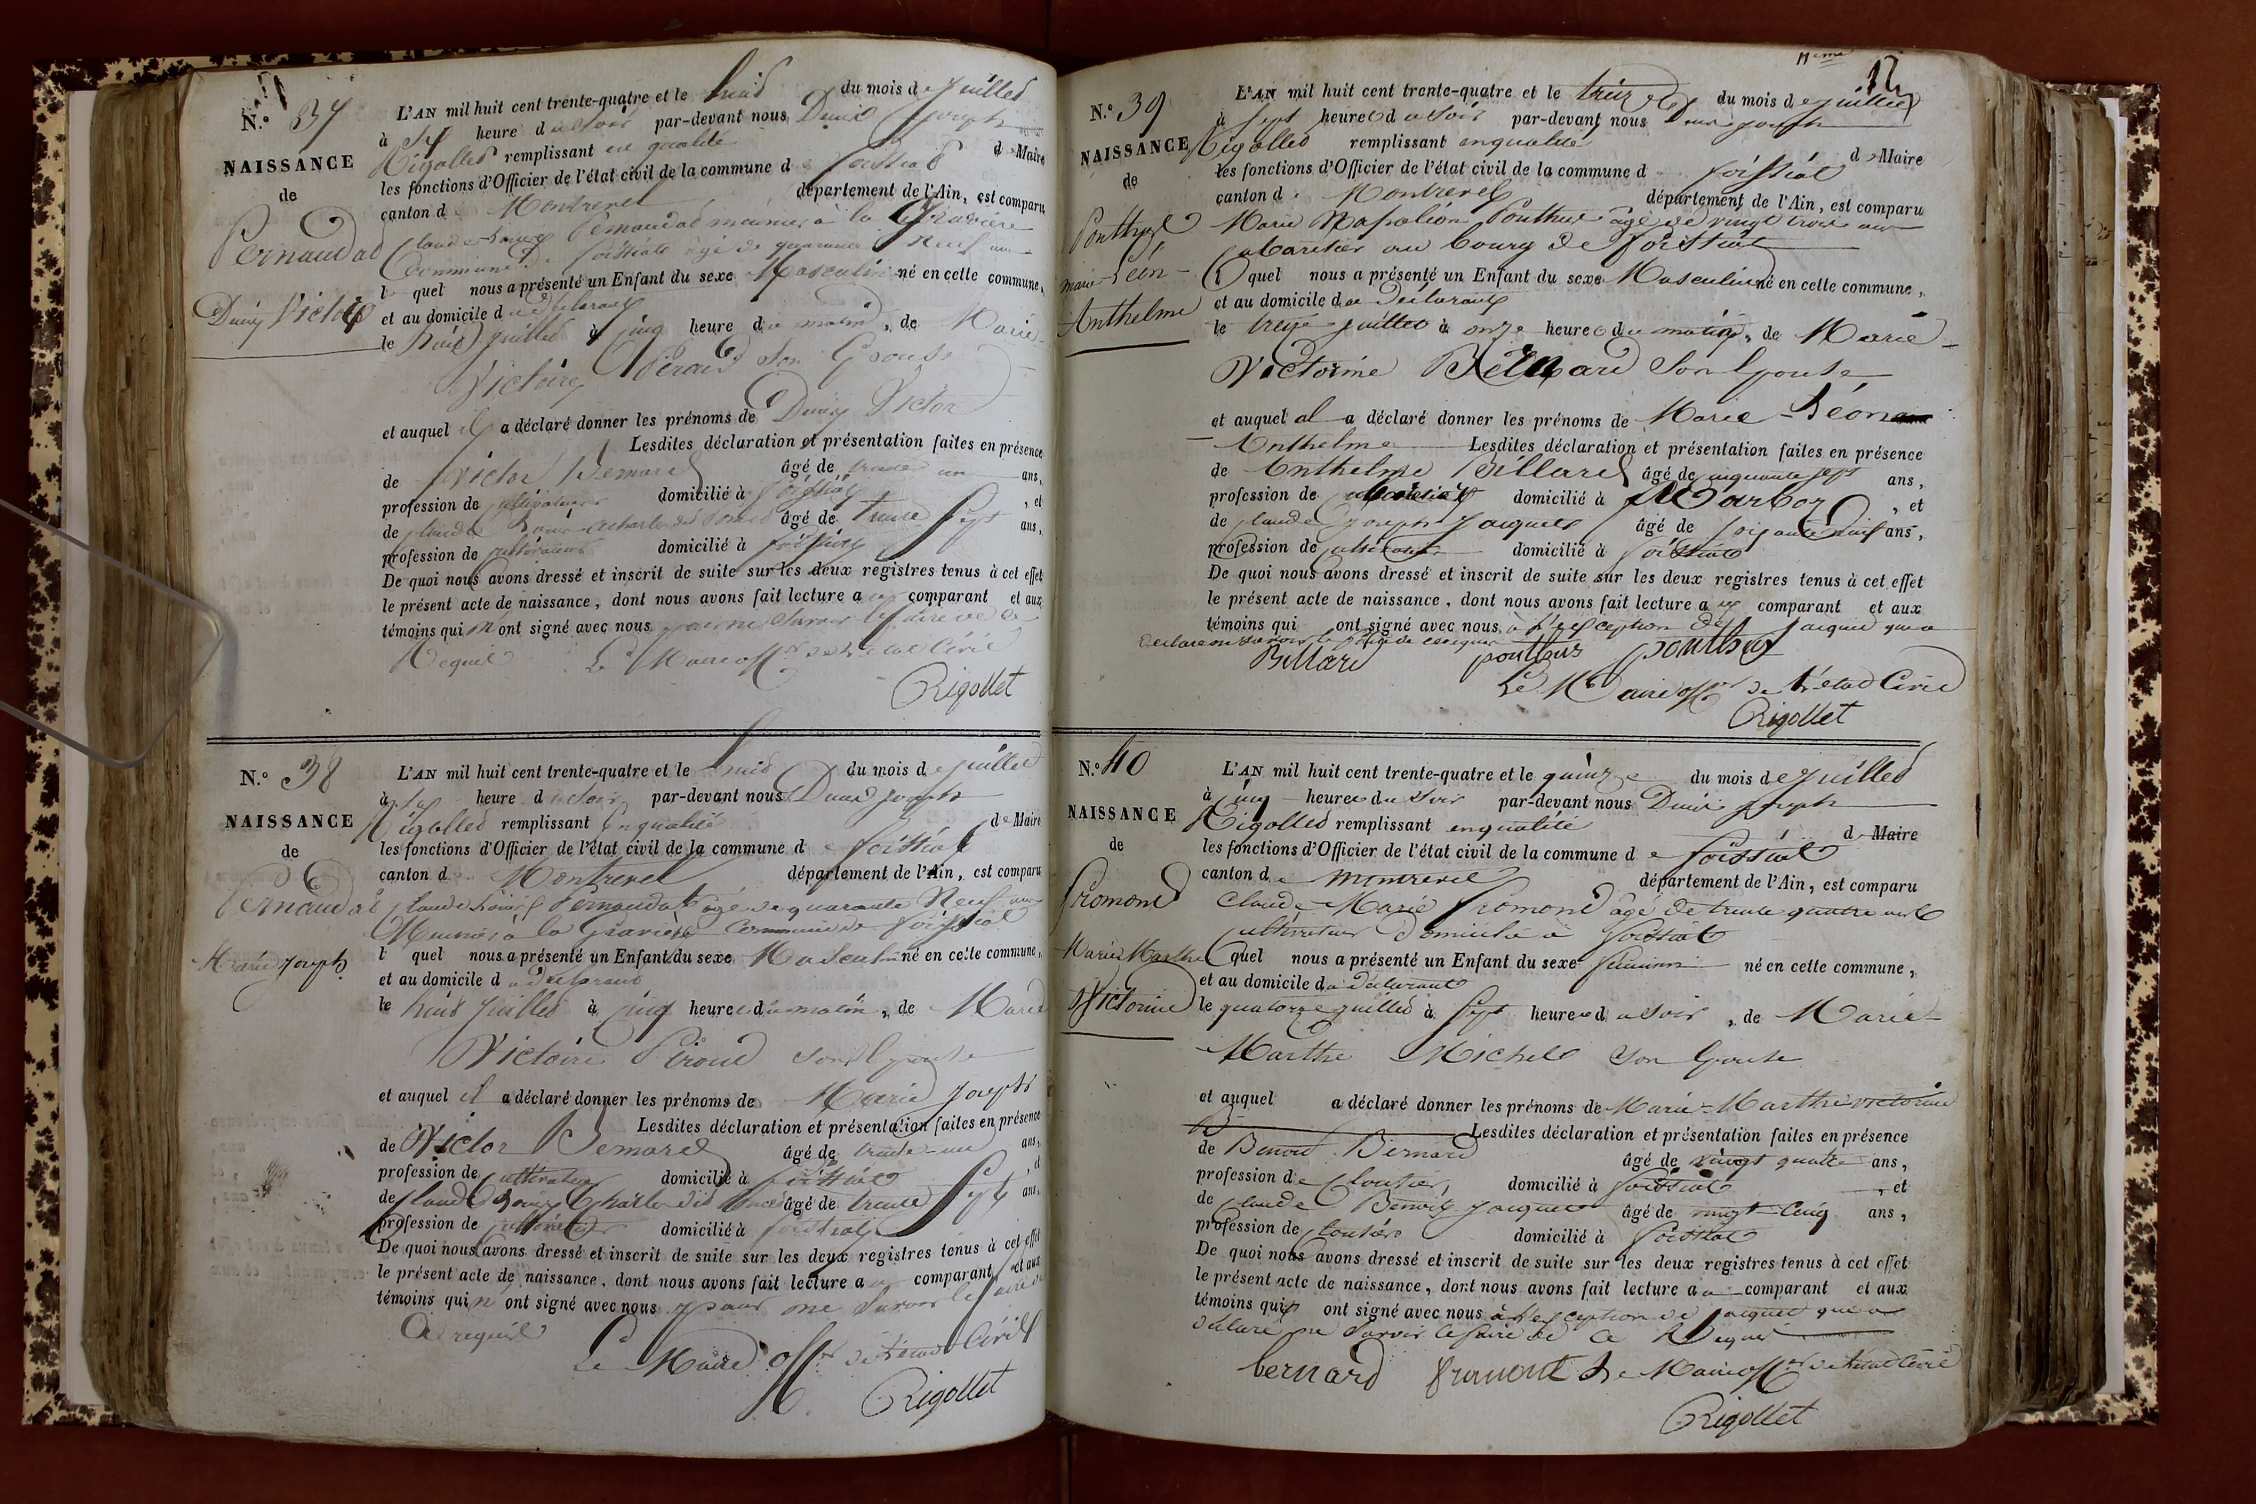 N.° 37
NAISSANCE
de
Pernaudat
Denis Victor
L'AN mil huit cent trente-quatre et le huit du mois de juillet
à heure du soir par-devant nous Denis Joseph
Rigollet remplissant en qualité de Maire
les fonctions d'Officier de l'état civil de la commune de foissiat
canton de Montrevel département de l'Ain, est comparu
Claude Louis Pernaudat meunier à la Gravière
Commune de foissiat âgé de quarante Neuf ans
lequel nous a présenté un Enfant du sexe Masculin né en cette commune,
et au domicile du déclarant
le huit juillet à cinq heure du matin, de Marie
Victoire Piroud Son Epouse
et auquel il a déclaré donner les prénoms de Denis Victor
Lesdites déclaration et présentation faites en présence
de Victor Bernard âgé de trente un ans,
profession de cultivateur domicilié à foissiat, et
de Claude Louis Charles dit âgé de trente Sept ans,
profession de cultivateur domicilié à foissiat
De quoi nous avons dressé et inscrit de suite sur les deux registres tenus à cet effet
le présent acte de naissance, dont nous avons fait lecture au comparant et aux
témoins qui n'ont signé avec nous pour ne Savoir le faire de ce
Requis Le Maire off.er de l'état Civil
Rigollet
N.° 38
NAISSANCE
de
Pernaudat
Marie Joseph
L'AN mil huit cent trente-quatre et le huit du mois de juillet
à heure du soir par-devant nous Denis Joseph
Rigollet remplissant en qualité de Maire
les fonctions d'Officier de l'état civil de la commune de foissiat
canton de Montrevel département de l'Ain, est comparu
Claude Louis Pernaudat âgé de quarante Neuf ans
Meunier à la Gravière Commune de foissiat
lequel nous a présenté un Enfant du sexe Masculin né en cette commune,
et au domicile du déclarant
le huit juillet à cinq heures du matin, de Marie
Victoire Piroud Son Epouse
et auquel il a déclaré donner les prénoms de Marie Joseph
Lesdites déclaration et présentation faites en présence
de Victor Bernard âgé de trente-un ans,
profession de cultivateur domicilié à foissiat, et
de Claude Louis Charles dit âgé de trente Sept ans,
profession de cultivateur domicilié à foissiat
De quoi nous avons dressé et inscrit de suite sur les deux registres tenus à cet effet
le présent acte de naissance, dont nous avons fait lecture au comparant et aux
témoins qui n'ont signé avec nous pour ne Savoir le faire de
Ce requis
Le Maire off.er de l'état Civil
Rigollet
11eme
12
N.° 39
NAISSANCE
de
Pouthus
marie Léon
Anthelme
L'AN mil huit cent trente-quatre et le treize du mois de juillet
à sept heures du soir par-devant nous Denis Joseph
Rigollet remplissant en qualité de Maire
les fonctions d'Officier de l'état civil de la commune d foissiat
canton de Montrevel département de l'Ain, est comparu
Marie Napoléon Pouthus âgé de vingt trois ans
cabaretier au bourg de foissiat
lequel nous a présenté un Enfant du sexe Masculin né en cette commune,
et au domicile du déclarant
le treize juillet à onze heures du matin, de Marie
Victorine Bernard Son Epouse
et auquel il a déclaré donner les prénoms de Marie Léon
Anthelme Lesdites déclaration et présentation faites en présence
de Anthelme Billard âgé de cinquante sept ans,
profession de domicilié à Marboz, et
de Claude Joseph Jacquet âgé de soixante huit ans,
profession de domicilié à foissiat
De quoi nous avons dressé et inscrit de suite sur les deux registres tenus à cet effet
le présent acte de naissance, dont nous avons fait lecture au comparant et aux
témoins qui ont signé avec nous à l'exception de Jacquet qui a
déclaré ne savoir le faire de ce requis
Billard pouthus pouthus
Le Maire off.er de l'état Civil
Rigollet
N.° 40
NAISSANCE
de
fromont
Marie Marthe
Victorine
L'AN mil huit cent trente-quatre et le quinze du mois de juillet
à cinq heures du soir par-devant nous Denis Joseph
Rigollet remplissant en qualité de Maire
les fonctions d'Officier de l'état civil de la commune de foissiat
canton de montrevel département de l'Ain, est comparu
Claude Marie fromont âgé de trente quatre ans
cultivateur domicilié à foissiat
lequel nous a présenté un Enfant du sexe féminin né en cette commune,
et au domicile du déclarant
le quatorze juillet à Sept heures du soir, de Marie
Marthe Michel Son Epouse
et auquel a déclaré donner les prénoms de Marie Marthe victorine
Lesdites déclaration et présentation faites en présence
de Benoit Bernard âgé de vingt quatre ans,
profession de cloutier, domicilié à foissiat, et
de Claude Benoit Jacquet âgé de vingt Cinq ans,
profession de cloutier domicilié à foissiat
De quoi nous avons dressé et inscrit de suite sur les deux registres tenus à cet effet
le présent acte de naissance, dont nous avons fait lecture au comparant et aux
témoins qui ont signé avec nous à l'exception de jacquet qui a
déclaré ne Savoir le faire de Ce Requis
bernard fromont Le Maire off.er de l'état Civil
Rigollet